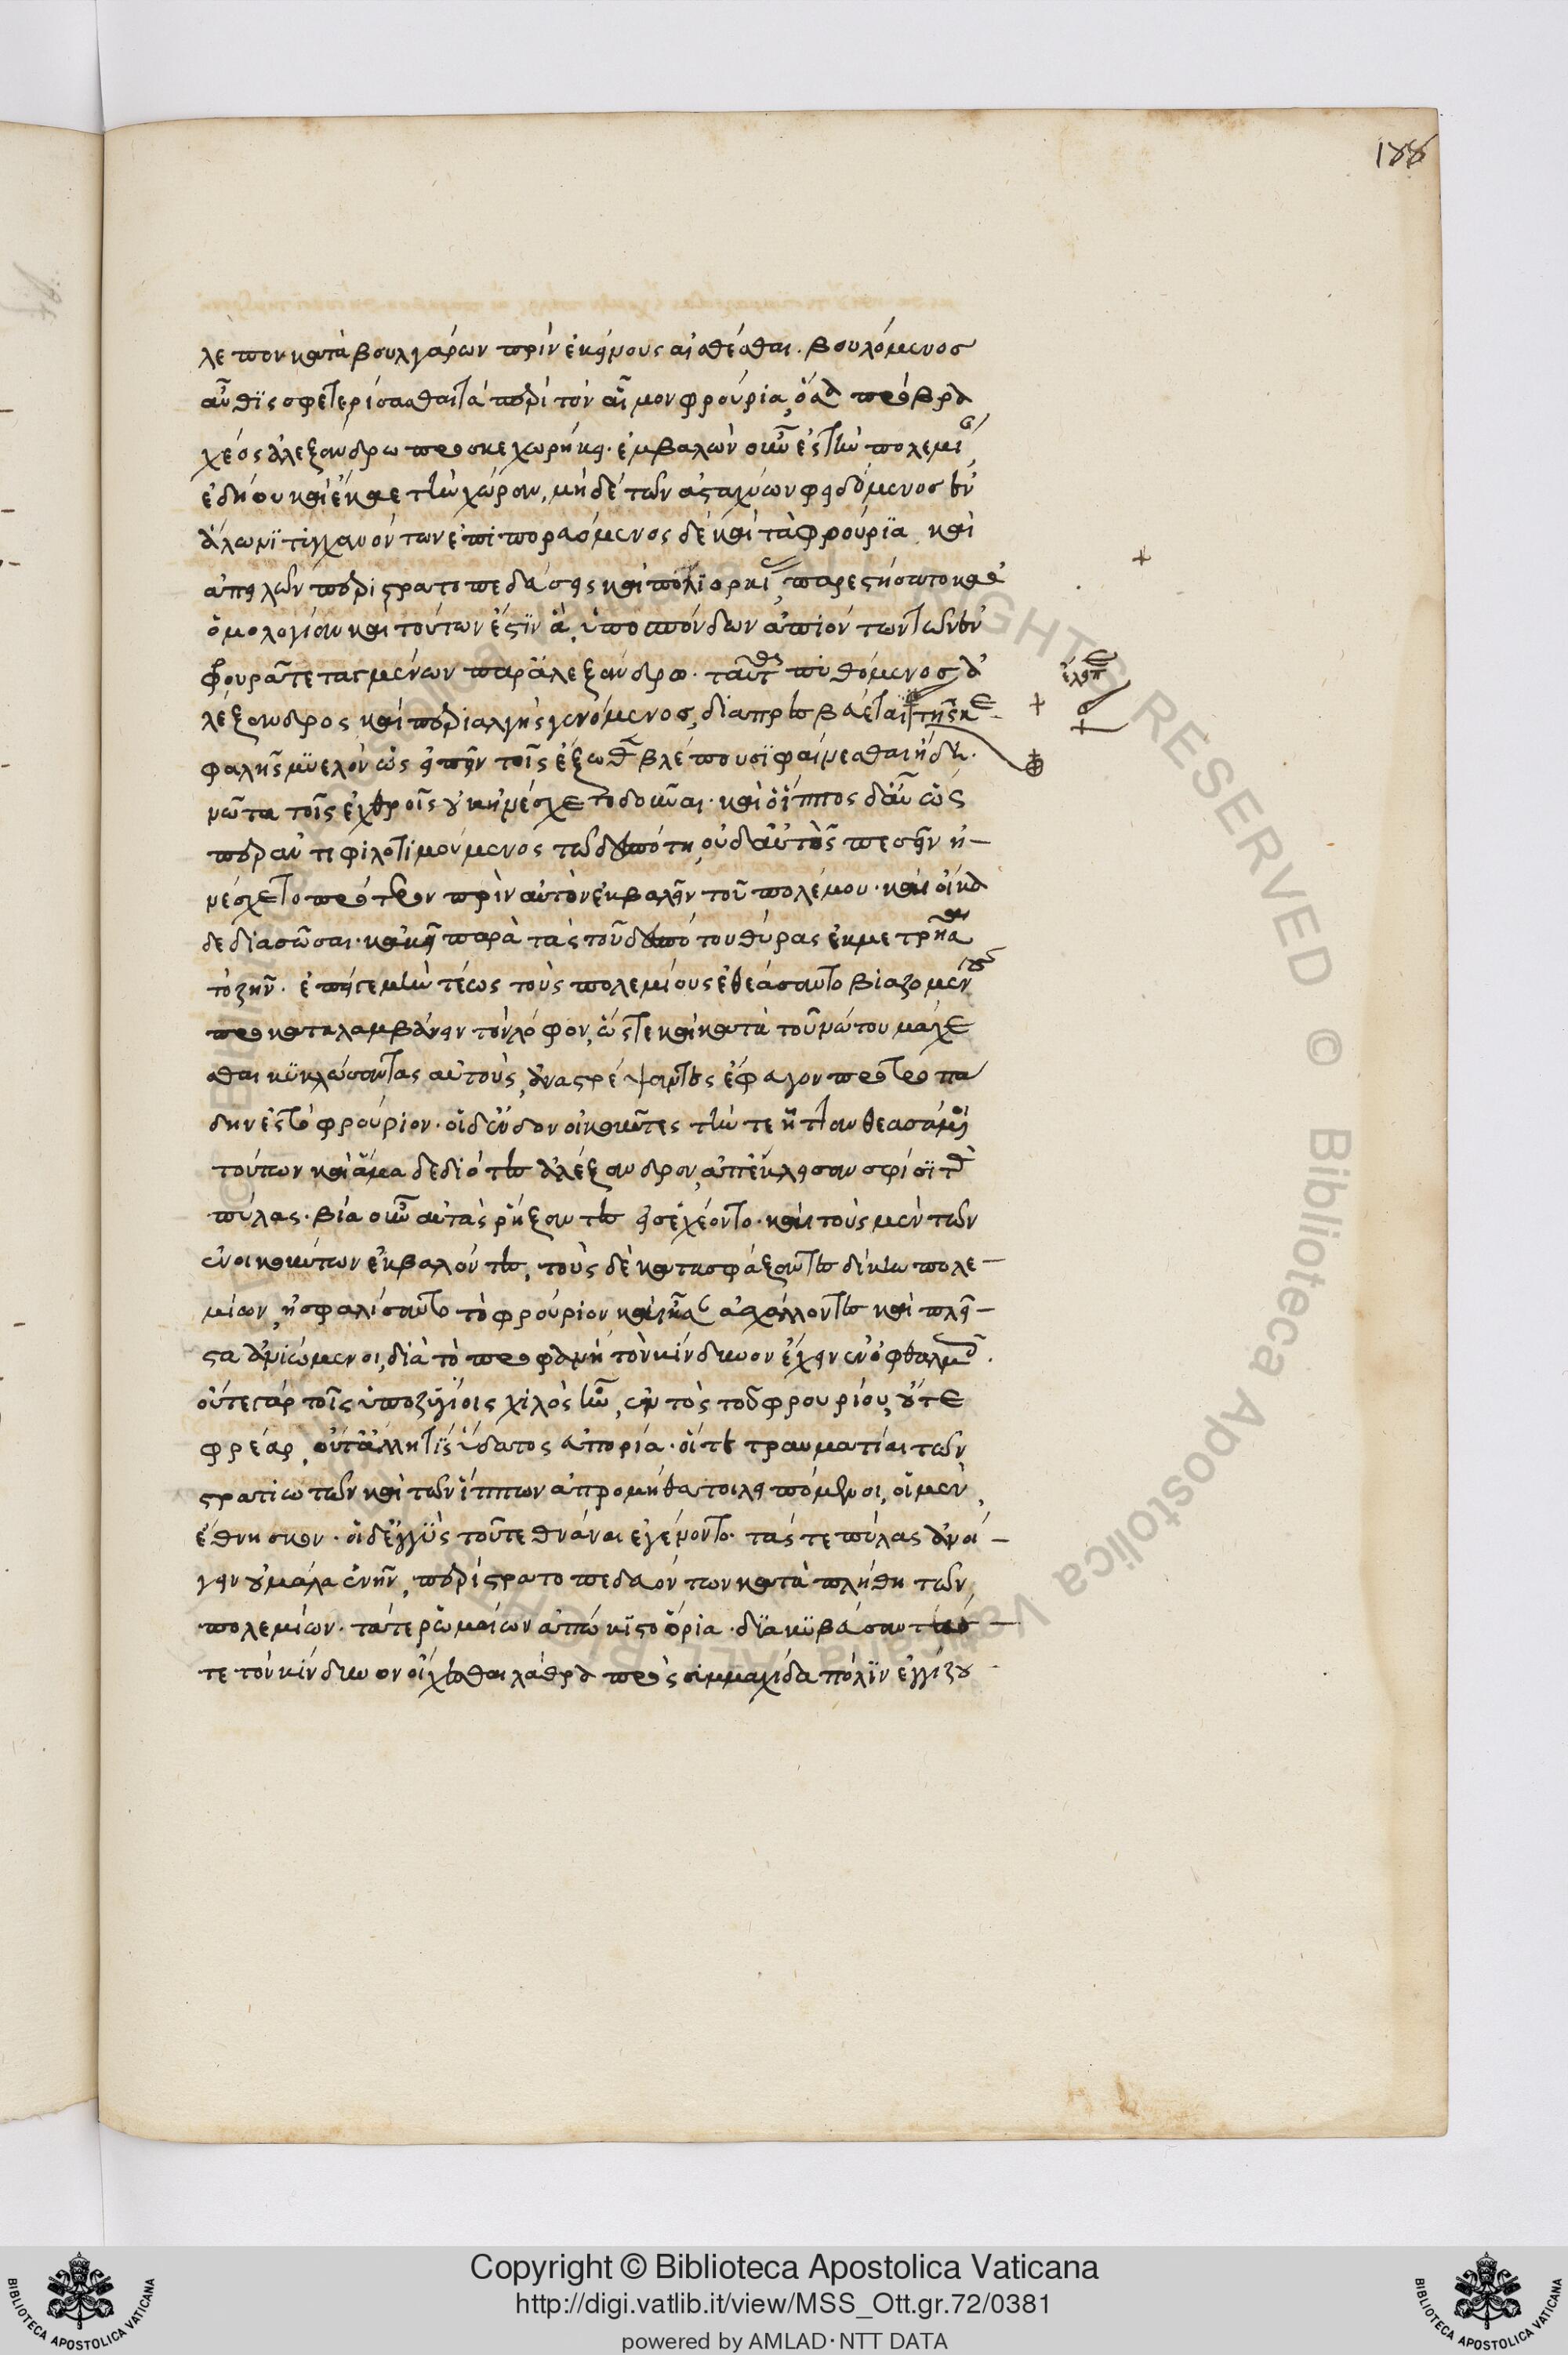 188
λεπον κατὰ βουλγάρων πρὶν ἐκείνους αἰσθέσθαι. βουλόμενος
αὖθϊς σφετερίσασθαι τὰ περὶ τὸν αἷμον φρούρια, ὅσα πρὸ βρα
χέος ἀλεξάνδρω προσκεχωρήκει. ἐμβαλὼν οὖν ἐς τὴν πολεμί
ἐδῄου καὶ ἔκαε τὴν χώραν, μὴ δὲ τῶν ἀσταχύων φειδόμενος ἐν
ἅλωνϊ τυγχανόντων ἐπιπορασόμενος δὲ καὶ τὰ φρούρϊα καὶ
ἀπειλῶν περιστρατοπεδεύσεις καὶ πολϊορκί, παρεστήσατο καθ
ὁμολογίαν καὶ τούτων ἔστϊν ἃ, ὑποσπόνδων ἀπιόντων τῶν ἐν
φρουρᾶ τεταγμένων παρ ἀλεξάνδρω. ταῦτα πυθόμενος ἀ
λέξανδρος καὶ περιαλγὴς γενόμενος, διαπρὲς βάεται τῆς κε
φαλῆς μϋελὸν ὡς εἰπεῖν τοῖς ἔξωθεν βλέπουσϊ φαίνεσθαι ἤδη.
νῶτα τοῖς ἐχθροῖς οὐκ ἠνέσχετο δοῦναι. καὶ ὁ ἵππος δ αὖ ὡς
περ ἀντιφιλοτιμούμενος τῶ δεσπότη, οὐδ αὐτὸς πεσεῖν ἠ–
νέσχετο πρότερον πρὶν αὐτὸν ἐκβαλεῖν τοῦ πολέμου. καὶ οἴκα
δε διασῶσαι. κἀκεῖ παρὰ τὰς τοῦ δεσπότου θύρας ἐκμετρῆσαι
τὸ ζῆν. ἐπεί γε μὴν τέως τοὺς πολεμίους ἐθεάσαντο βιαζομένους
προκαταλαμβάνειν τὸν λόφον, ὥστε καὶ κατὰ τοῦ νώτου μάχε
σθαι κϋκλώσαντας αὐτοὺς, ἀναστρέψαντες ἔφαγον προτροπά
δην ἐς τὸ φρούριον. οἱ δ ἔνδον οἰκοῦντες τήν τε ἧτταν θεασάμενοι
τούτων καὶ ἅμα δεδιότες ἀλέξανδρον, ἀπέκλεισαν σφίσϊ τὰς
πύλας. βία οὖν αὐτὰς ῥήξαντες εἰσεχέοντο. καὶ τοὺς μὲν τῶν
ἐνοικούντων ἐκβαλόντες, τοὺς δὲ κατασφάξαντες δίκην πολε–
μίων, ἠσφαλίσαντο τὸ φρούριον ἀσχάλλοντες καὶ πλεῖ–
στα ἀνιώμενοι, διὰ τὸ προφανῆ τὸν κίνδυνον ἔχειν ἐν ὀφθαλμοῖς.
οὔτε γὰρ τοῖς ὑποζυγίοις χιλὸς ἦν, ἐντὸς τοῦ φρουρίου, οὔτε
φρέαρ, οὔτ ἄλλη τϊς ὕδατος ἀπορία. οἵ τε τραυματίαι τῶν
στρατιωτῶν καὶ τῶν ἵππων ἀπρομήθατοι λειπόμενοι, οἱ μὲν
ἔθνησκον. οἱ δ ἐγγϋς τοῦ τεθνάναι ἐγένοντο. τάς τε πύλας ἀνοί–
γειν οὐ μάλα ἐνῆν, περιστρατοπεδευόντων κατὰ πλήθη τῶν
πολεμίων. τά τε ῥωμαίων ἀπώκϊστο ὅρια. δϊακϋβεύσαντες
τε τὸν κίνδυνον οἴχεσθαι λάθρα πρὸς συμμαχίδα πόλϊν ἐγγίζου